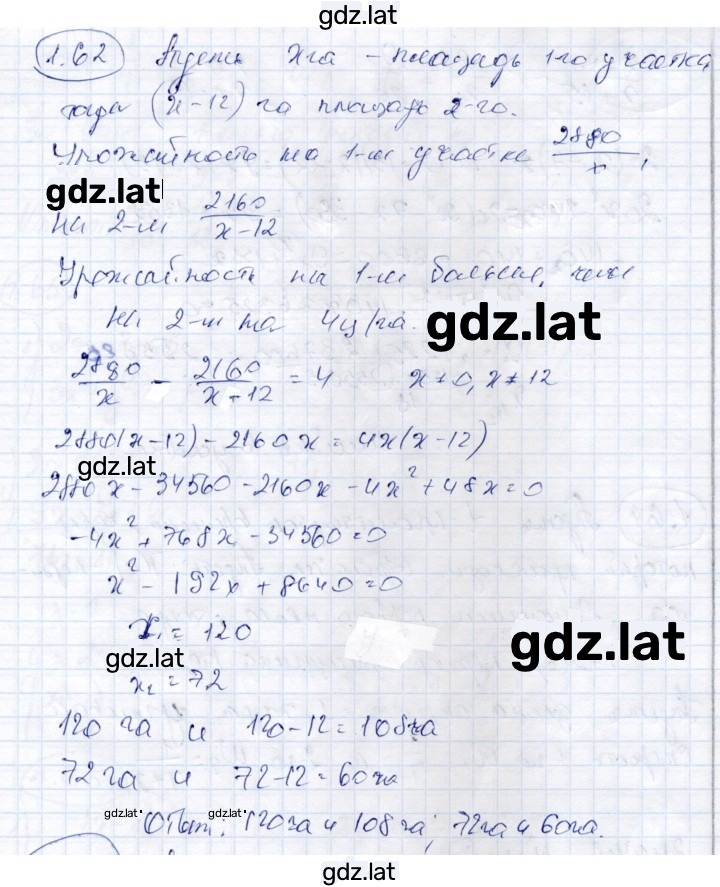 gdz.lat
1.62 Пусть x га – площадь 1-го участка,
тогда (x-12) га площадь 2-го.
Урожайность на 1-м участке 2880/x,
gdz.lat
на 2-м 2160/(x-12)
Урожайность на 1-м больше, чем
на 2-м на 4ц/га. gdz.lat
2880/x - 2160/(x-12) = 4 x≠0, x≠12
2880(x-12)-2160x=4x(x-12)
gdz.lat
2880x-34560-2160x-4x²+48x=0
-4x²+768x-34560=0
x²-192x+8640=0
x₁=120
gdz.lat
gdz.lat
x₂=72
120 га и 120-12=108га
72га и 72-12=60га
gdz.lat gdz.lat
Ответ: 120га и 108га; 72га и 60га.
gdz.lat